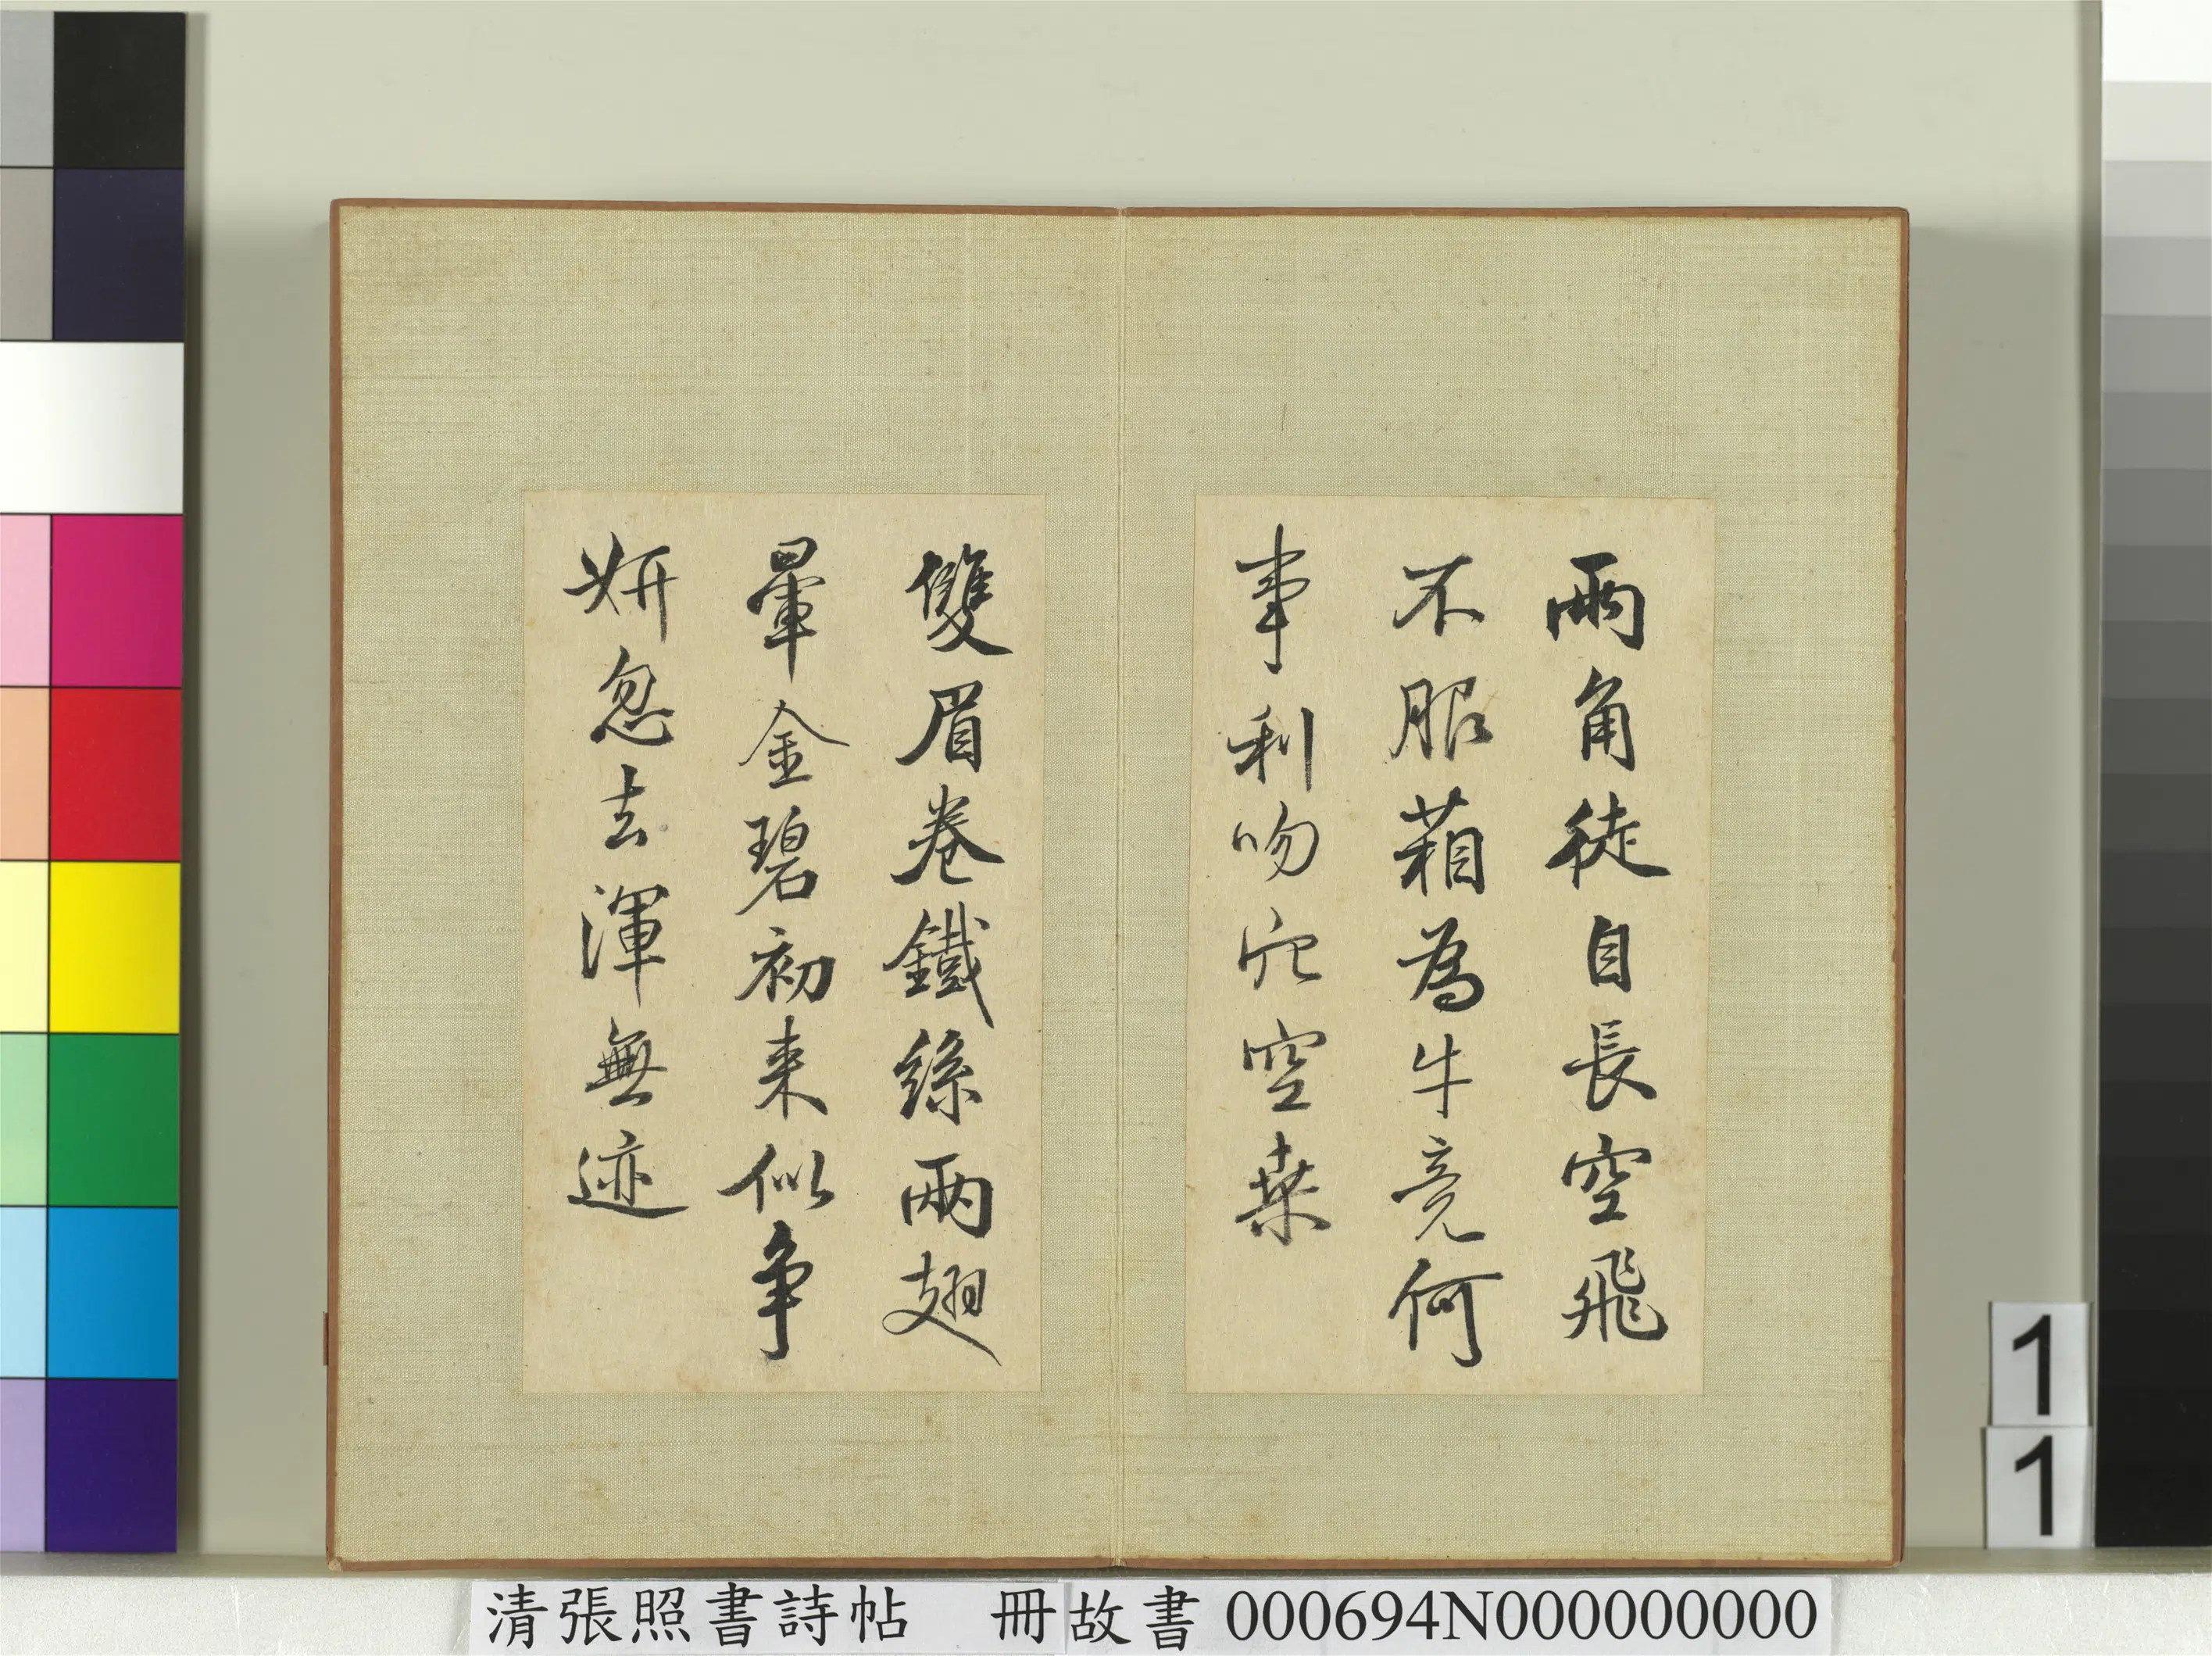 兩角徒自長空飛
不服葙為牛竟何
事利吻穴空桒
雙眉卷鐵絲兩翅
暈金碧初来似争
妍忽去渾無迹
1
1
清張照書詩帖 冊故書 000694N000000000